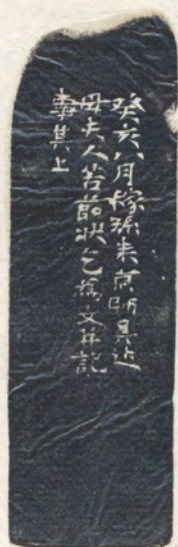 癸亥八月稼孫来京師具述
母夫人苦節狀乞爲文并記
其上